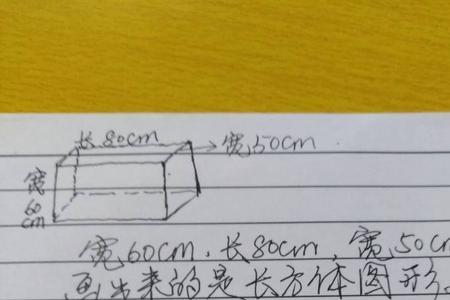 长80cm
宽50cm
宽
60
cm
宽60cm.长80cm,宽50cm
画出来的是长方体图形.